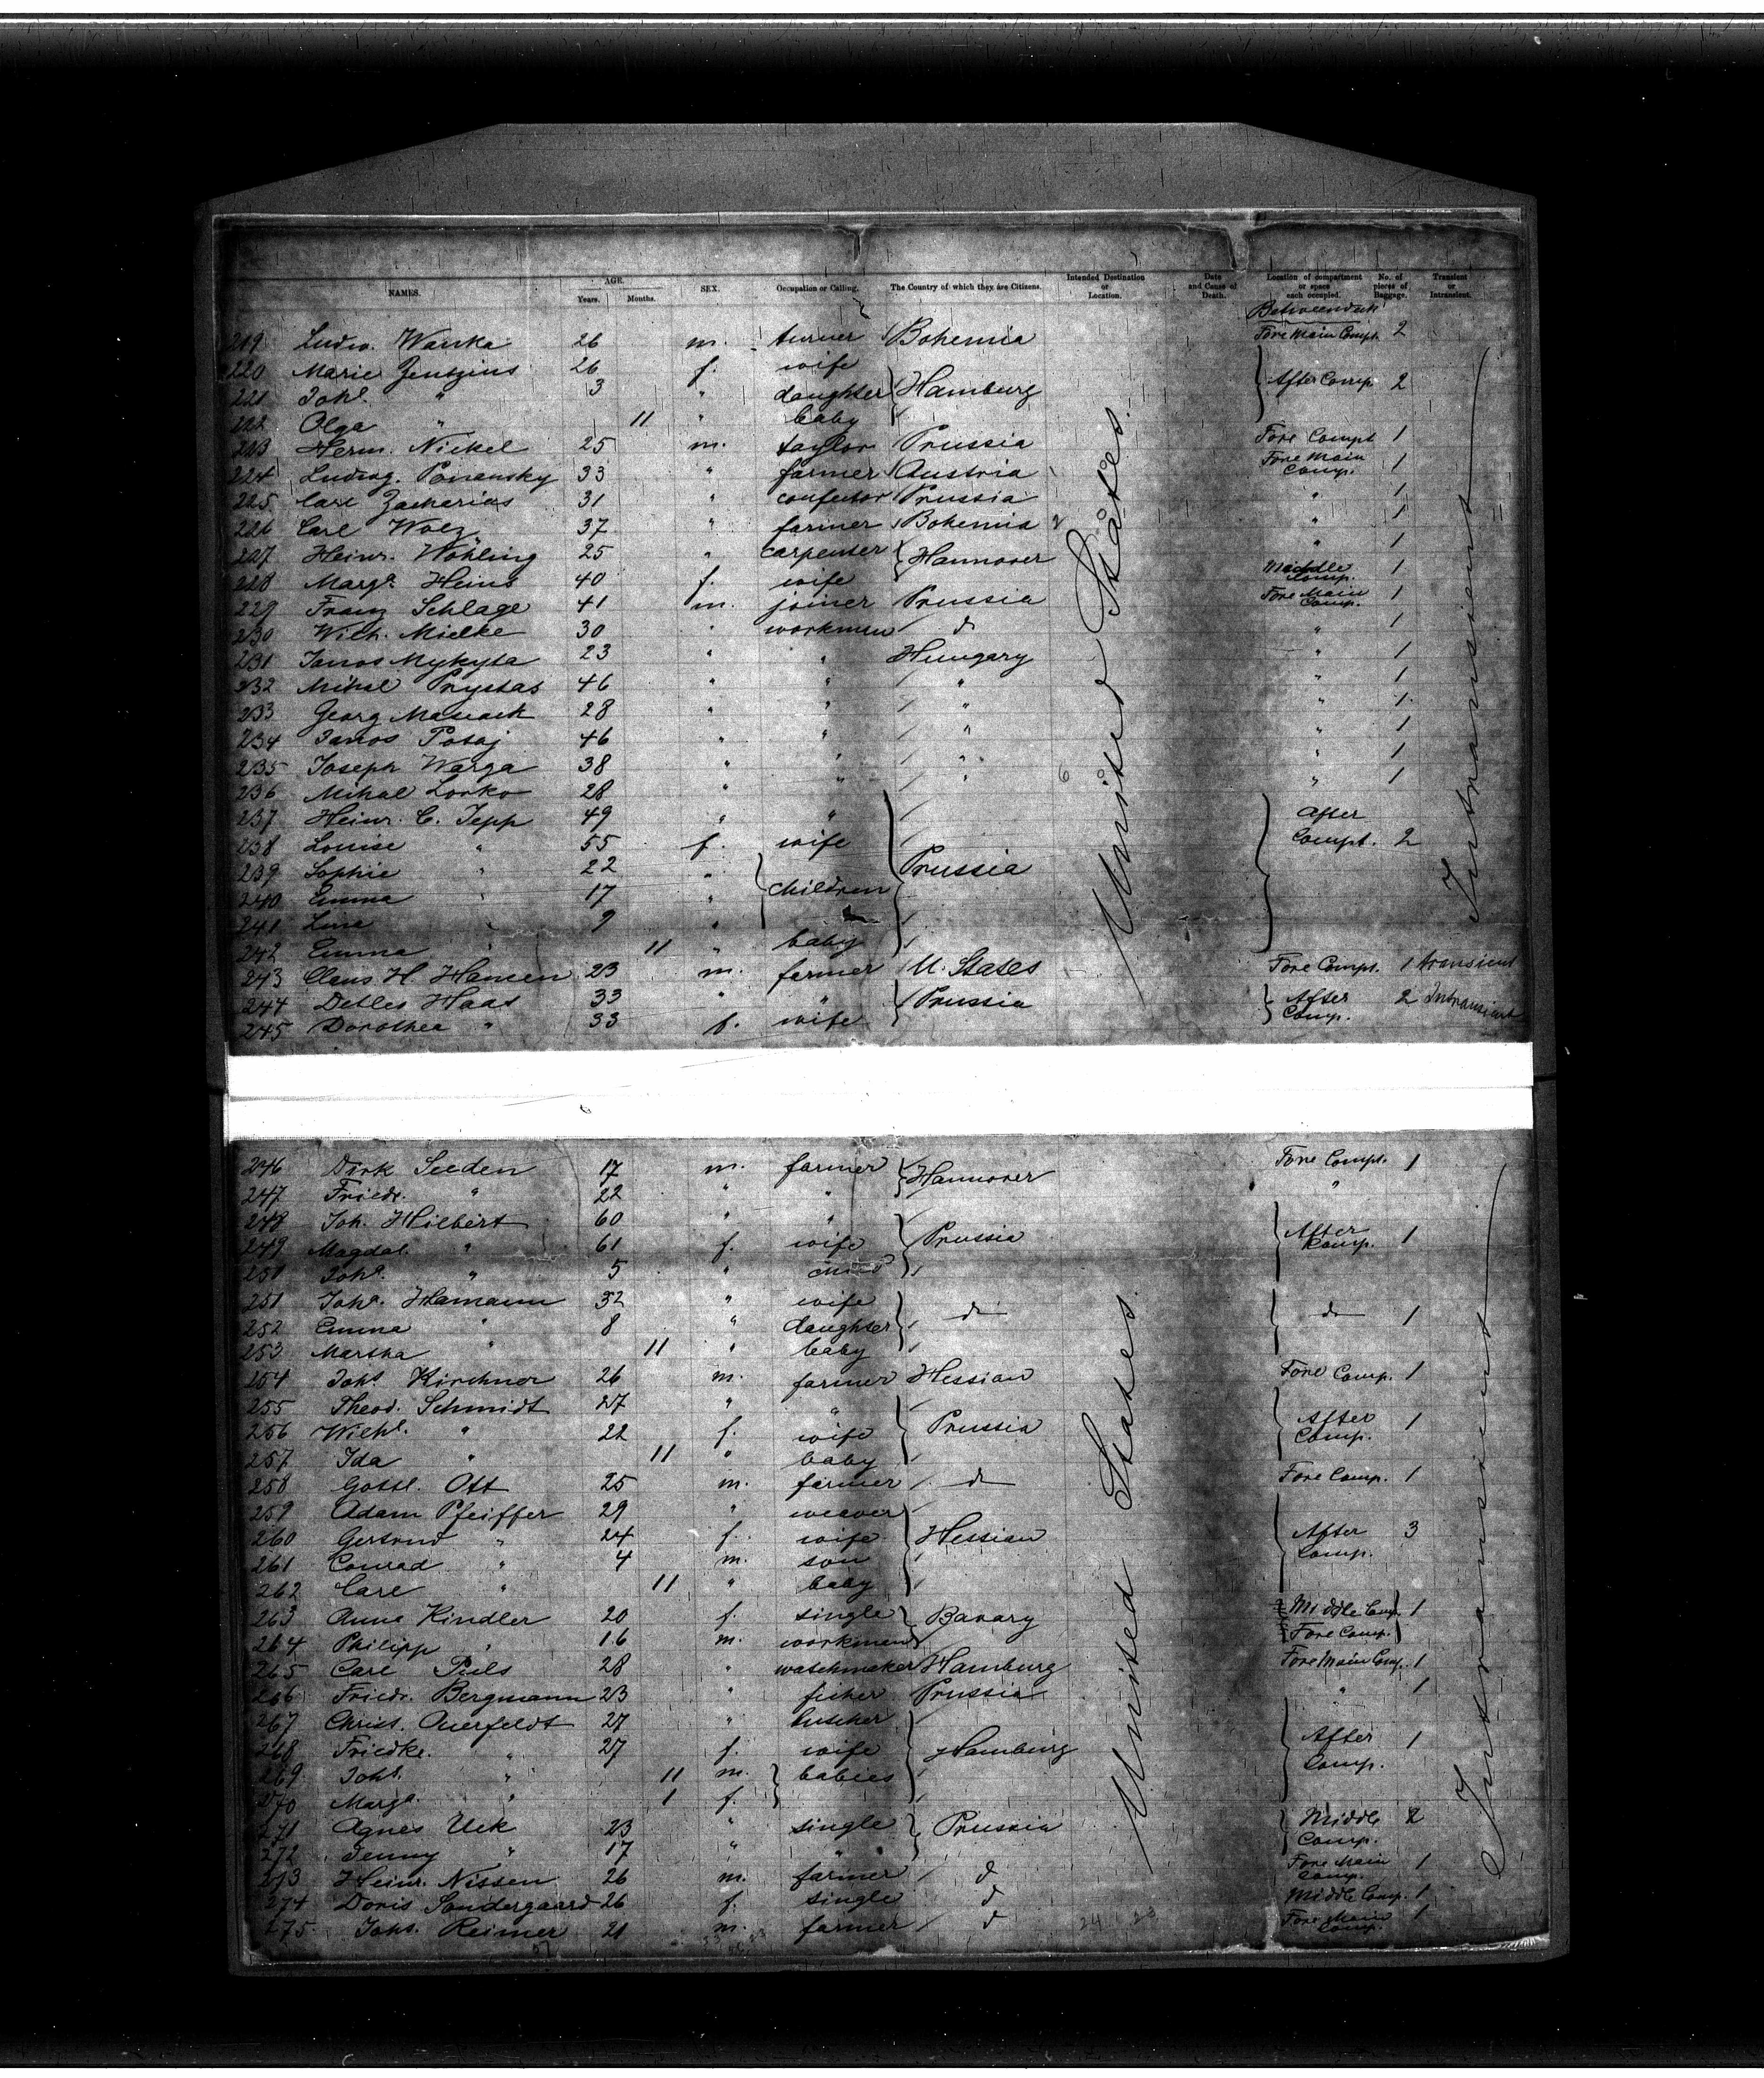 NAMES. AGE. Years. Months. SEX. Occupation or Calling. The Country of which they are Citizens. Intended Destination or Location. Date and Cause of Death. Location of compartment or space each occupied. No. of pieces of Baggage. Transient or Intransient.
Betweendeck
219 Ludw. Wanka 26 m. turner Bohemia Fore Main Compt. 2
220 Marie Jentzius 26 f. wife
221 Joh^e. " 3 " daughter Hamburg After Comp. 2
222 Olga " 11 " baby
223 Herm. Nickel 25 m. taylor Prussia Fore Compt 1
224 Ludwg. Ponansky 33 " farmer Austria Fore Main Comp. 1
225 Carl Zacharias 31 " confector Prussia " 1
226 Carl Walz 37 " farmer Bohemia " 1
227 Heinr. Wöhling 25 " carpenter Hannover " 1
228 Marg^a. Heins 40 f. wife Middle Comp. 1
229 Franz Schlage 41 m. joiner Prussia Fore Main Comp. 1
230 Wilh. Mielke 30 " workmen d " 1
231 Janos Mykyta 23 " " Hungary " 1
232 Mihal Prystas 46 " " " " 1
233 Georg Masiack 28 " " " " 1
234 Janos Potaj 46 " " " " 1
235 Joseph Warga 38 " " " " 1
236 Mihal Lorko 28 " " " " 1
237 Heinr. C. Jepp 49 " " After
238 Louise " 55 f. wife Compt. 2
239 Sophie " 22 " Prussia
240 Emma " 17 " children
241 Lina " 9 "
242 Emma " 11 " baby
243 Claus H. Hansen 23 m. farmer U. States Fore Compt. 1 transient
244 Detles Haas 33 " " Prussia After Comp. 2 Intransient
245 Dorothea " 33 f. wife
United States
Intransient
246 Dirk Seeden 17 m. farmer Hannover Fore Compt. 1
247 Friedr. " 22 " " "
248 Joh. Hilbert 60 " "
249 Magdal. " 61 f. wife Prussia After Comp. 1
250 Joh^a. " 5 " child
251 Joh^a. Hamann 32 " wife
252 Emma " 8 " daughter d d 1
253 Martha " 11 " baby
254 Joh^s. Kirchner 26 m. farmer Hessian Fore Comp. 1
255 Theod. Schmidt 27 " "
256 Wilh^e. " 22 f. wife Prussia After Comp. 1
257 Ida " 11 " baby
258 Gottl. Ott 25 m. farmer d Fore Comp. 1
259 Adam Pfeiffer 29 " weaver
260 Gertrud " 24 f. wife Hessian After Comp. 3
261 Conrad " 4 m. son
262 Carl " 11 " baby
263 Anna Kindler 20 f. single Bavary Middle Comp. 1
264 Philipp " 16 m. workmen Fore Comp.
265 Carl Piels 28 " watchmaker Hamburg Fore Main Comp. 1
266 Friedr. Bergmann 23 " fisher Prussia " 1
267 Christ. Querfeldt 27 " butcher
268 Friedke. " 27 f. wife Hamburg After Comp. 1
269 Joh^s. " 11 m. babies
270 Marg^a. " 1 f.
271 Agnes Uek 23 " single Prussia Middle Comp. 2
272 Jenny " 17 " "
273 Heinr. Nissen 26 m. farmer d Fore Main Comp. 1
274 Doris Sondergaard 26 f. single d Middle Comp. 1
275. Joh^s. Reimer 21 m. farmer d Fore Main Comp. 1
United States
Intransient